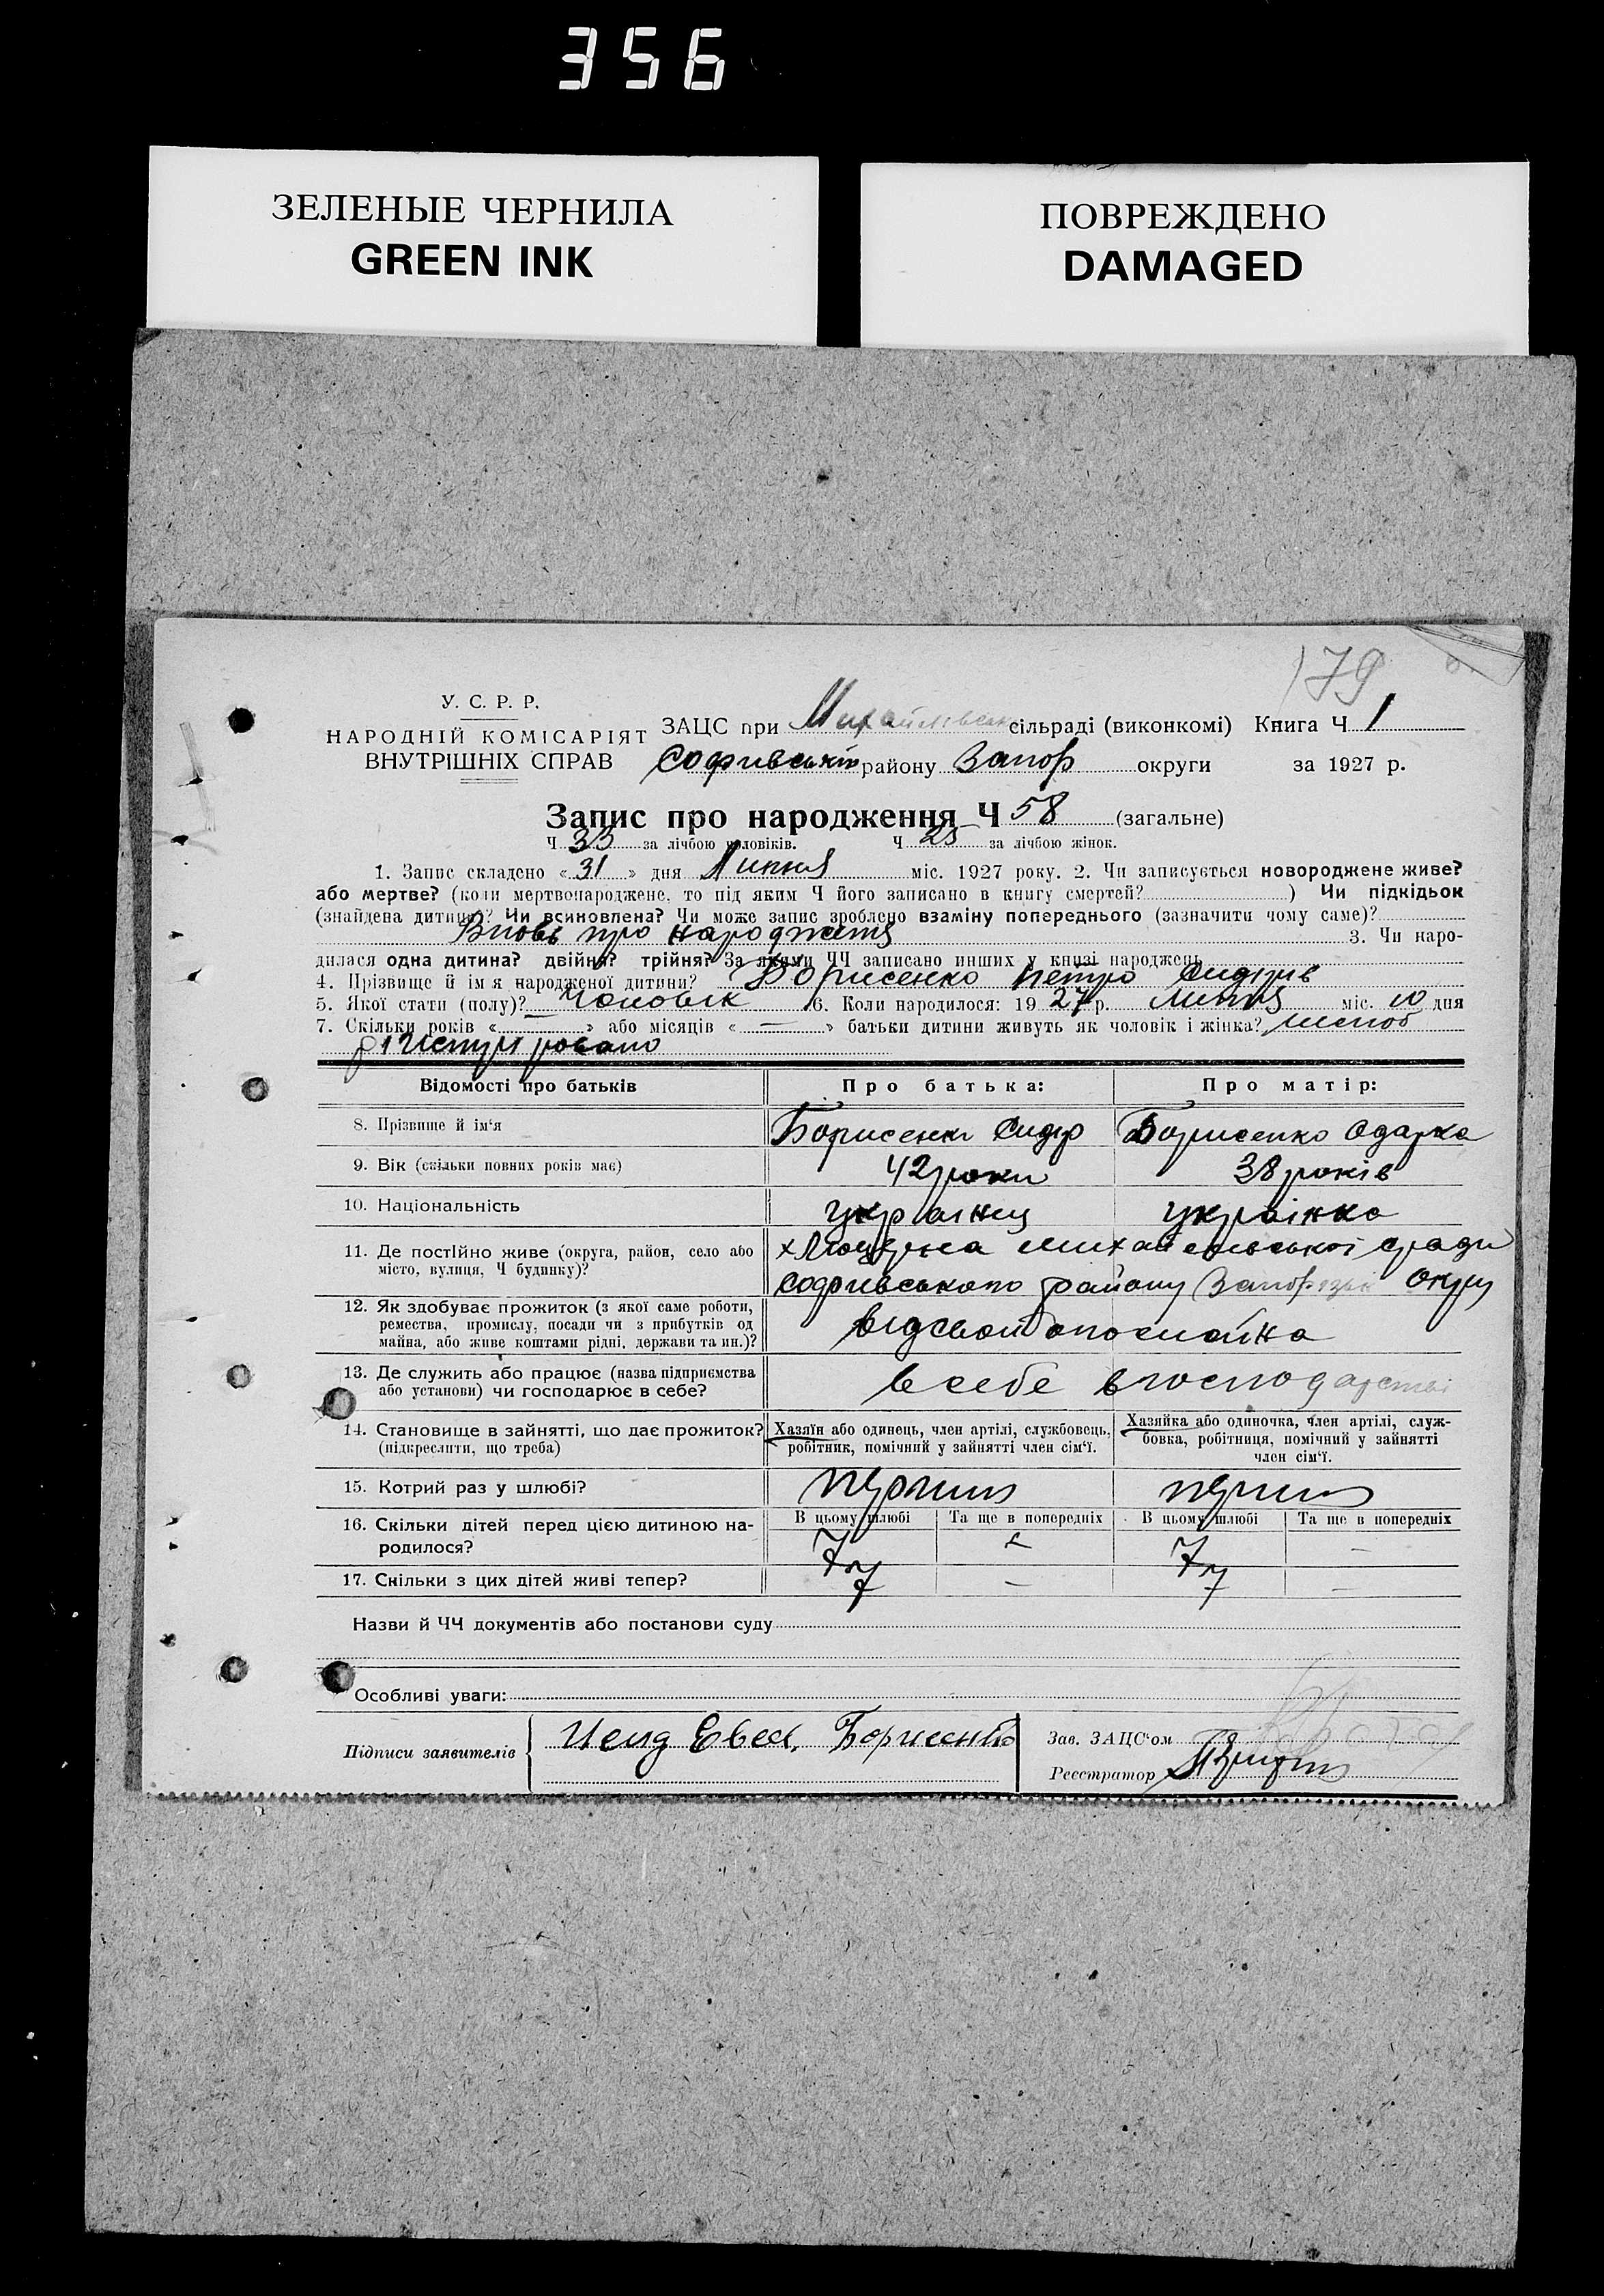 356
ЗЕЛЕНЫЕ ЧЕРНИЛА
GREEN INK
ПОВРЕЖДЕНО
DAMAGED
179
У. С. Р. Р.
НАРОДНІЙ КОМІСАРІЯТ
ВНУТРІШНІХ СПРАВ
ЗАЦС при Михайлівськ сільраді (виконкомі) Книга Ч 1
Софивський району Запор округи за 1927 р.
Запис про народження Ч 58 (загальне)
Ч 33 за лічбою чоловіків. Ч 25 за лічбою жінок.
1. Запис складено « 31 » дня Липня міс. 1927 року. 2. Чи записується новороджене живе?
або мертве? (коли мертвонароджене, то під яким Ч його записано в книгу смертей? ) Чи підкідьок
(знайдена дитина)? Чи всиновлена? Чи може запис зроблено взаміну попереднього (зазначити чому саме)?
Вновь про народження 3. Чи наро-
дилася одна дитина? двійня? трійня? За якими ЧЧ записано инших у книзі народжень
4. Прізвище й ім'я народженої дитини? Борисенко Петро Сидорів
5. Якої стати (полу)? Чоловік 6. Коли народилося: 19 27 р. Липня міс. 10 дня
7. Скільки років « — » або місяців « — » батьки дитини живуть як чоловік і жінка? шлюб
Відомості про батьків Про батька: Про матір:
8. Прізвище й ім'я Борисенко Сидір Борисенко Одарка
9. Вік (скільки повних років має) 42 роки 38 років
10. Національність українец українка
11. Де постійно живе (округа, район, село або місто, вулиця, Ч будинку)?
х Люцерна Михайлівської с/ради
Софиевського району Запорізьк Округ
12. Як здобуває прожиток (з якої саме роботи,
ремества, промислу, посади чи з прибутків од
майна, або живе коштами рідні, держави та ин.)?
13. Де служить або працює (назва підприємства
або установи) чи господарює в себе?
в себе в господарстві
14. Становище в зайнятті, що дає прожиток?
(підкреслити, що треба)
Хазяїн або одинець, член артілі, службовець,
робітник, помічний у зайнятті член сім'ї.
Хазяйка або одиночка, член артілі, служ-
бовка, робітниця, помічний у зайнятті
член сім'ї.
15. Котрий раз у шлюбі? перший перший
16. Скільки дітей перед цією дитиною на-
родилося?
В цьому шлюбі Та ще в попередніх В цьому шлюбі Та ще в попередніх
7 — 7 —
17. Скільки з цих дітей живі тепер? 7 — 7 —
Назви й ЧЧ документів або постанови суду
Особливі уваги:
Підписи заявителів Борисенко
Зав. ЗАЦС'ом
Реєстратор